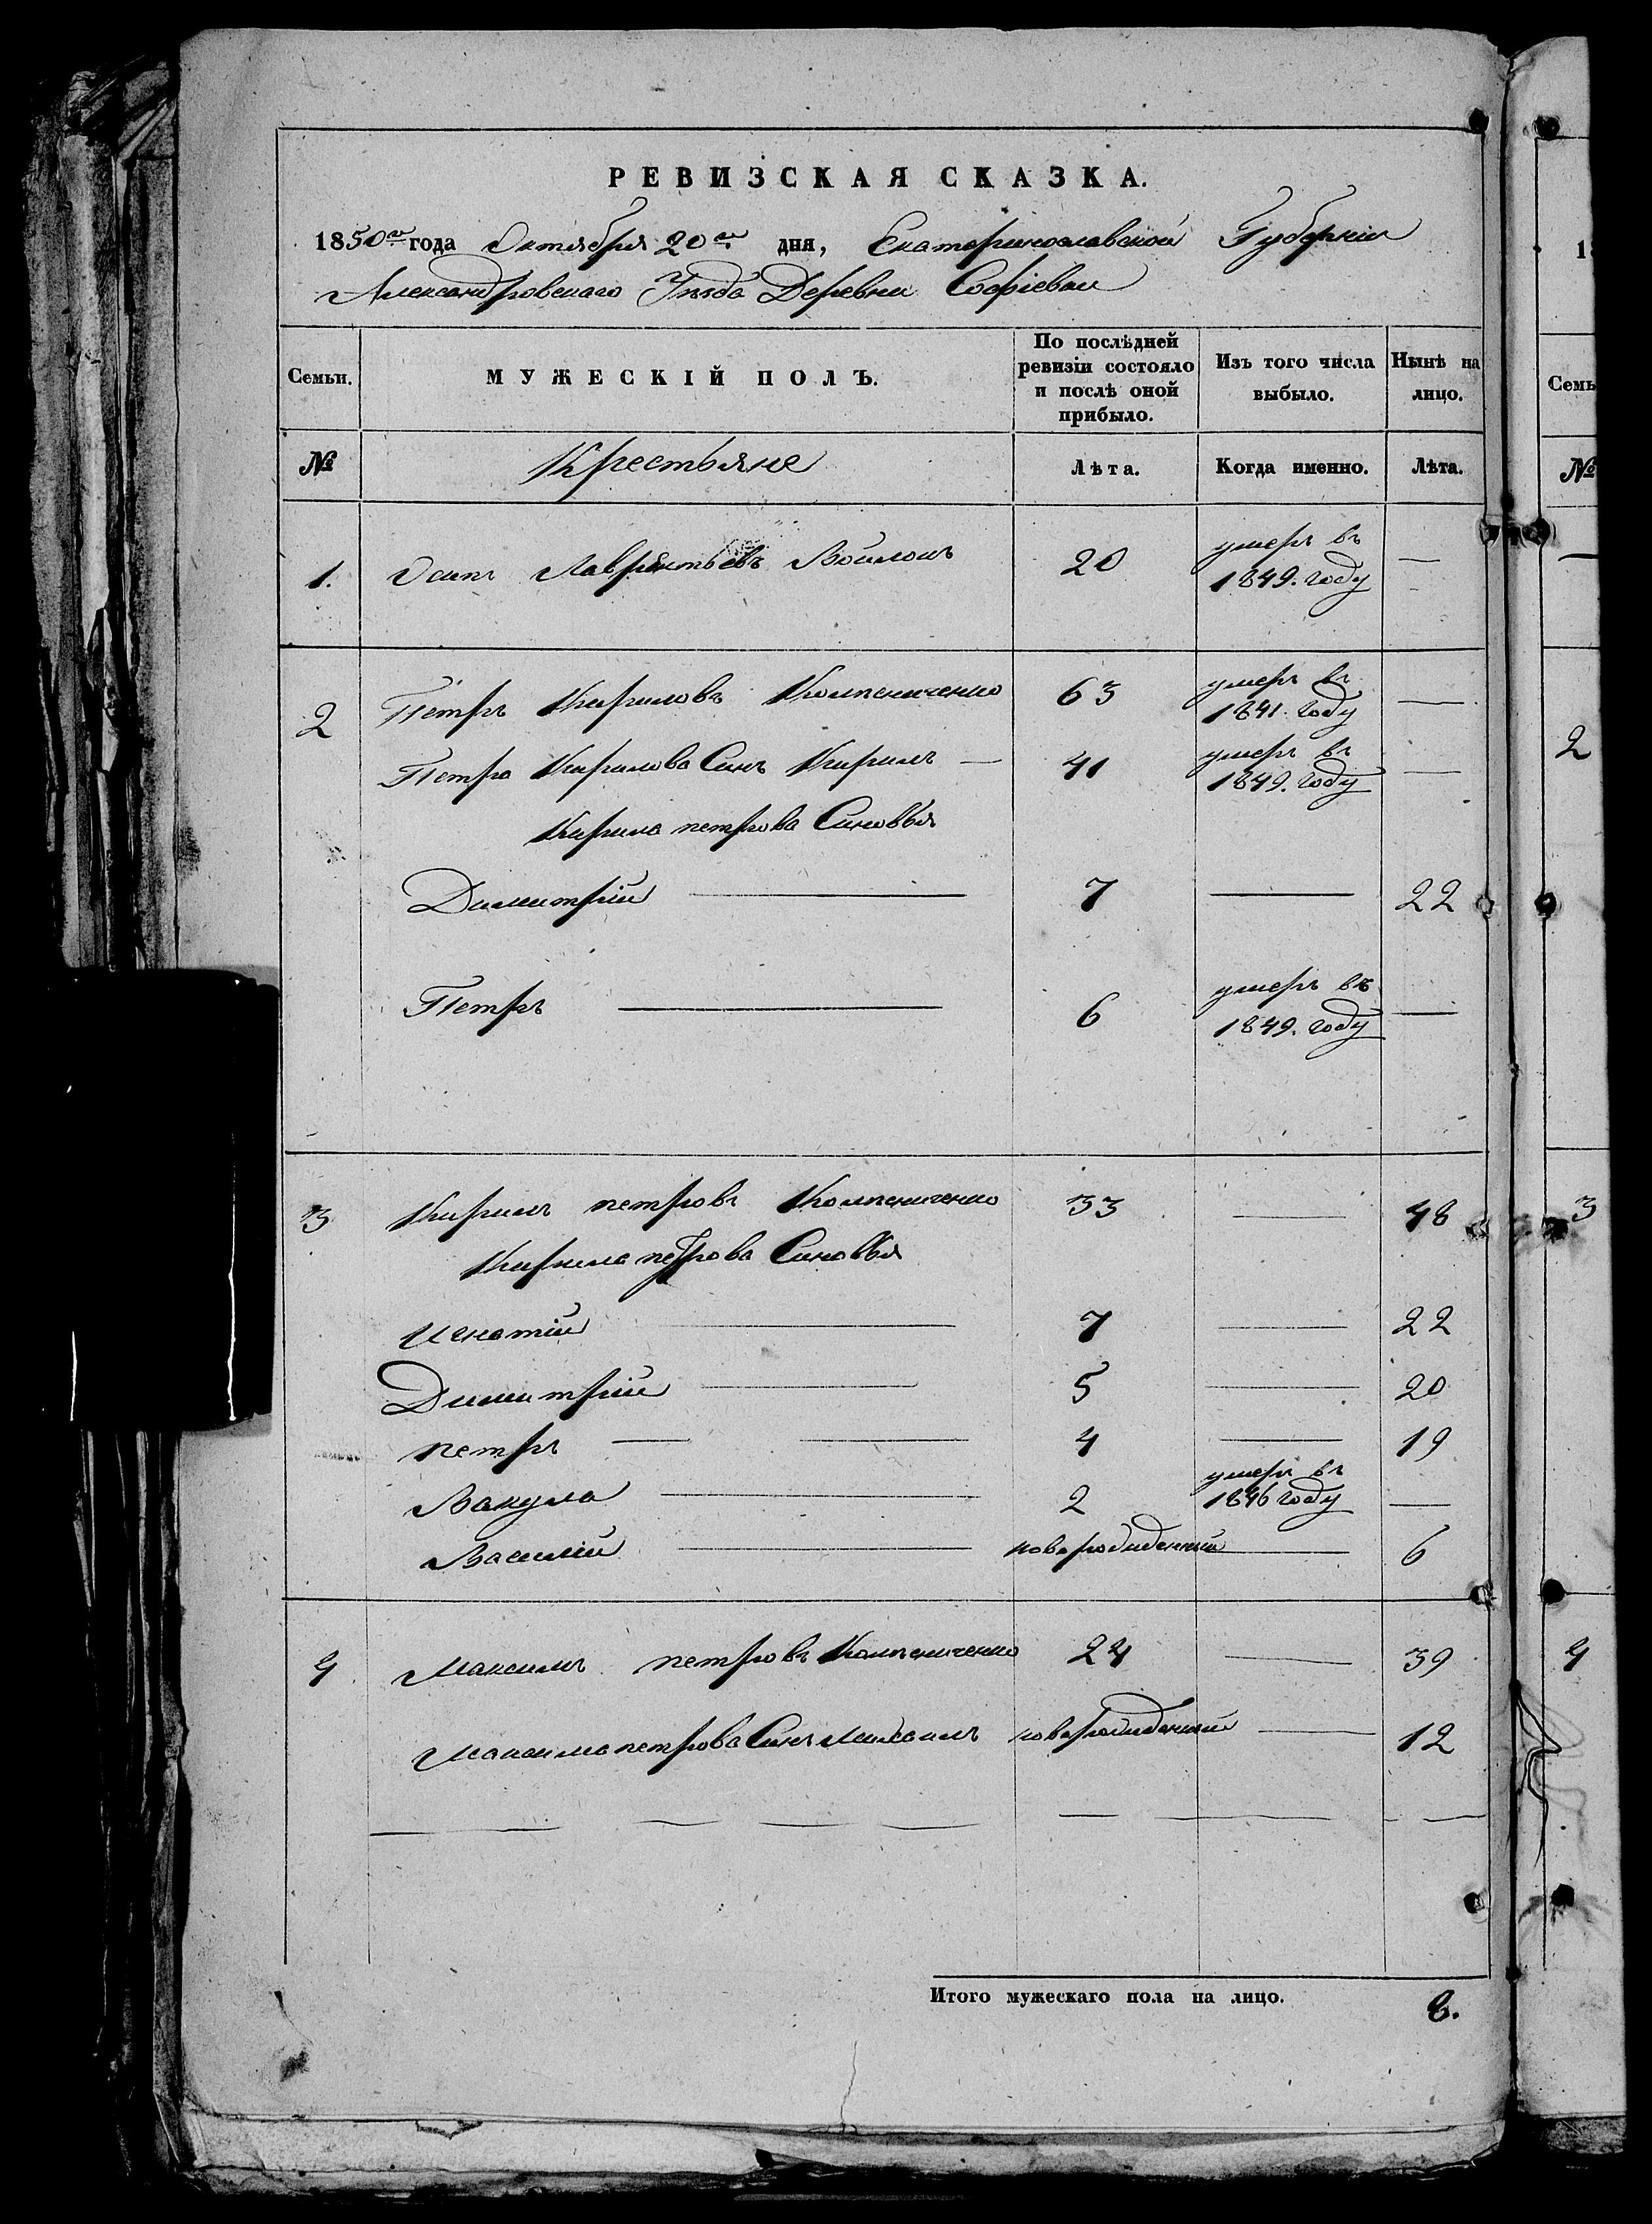 РЕВИЗСКАЯ СКАЗКА.
1850го года Октября 20го дня, Екатеринославской Губернiи
Александровскаго Уѣзда Деревни Софiевки
Семьи. МУЖЕСКIЙ ПОЛЪ. По послѣдней ревизiи состояло и послѣ оной прибыло. Изъ того числа выбыло. Нынѣ на лицо.
№ Крестьяне Лѣта. Когда именно. Лѣта.
1. Осипъ Лаврентьевъ 20 умеръ въ 1849. году —
2 Петръ Кириловъ 63 умеръ въ 1841. году —
Петра Кирилова Сынъ Кирилъ — 41 умеръ въ 1849. году —
Кирила петрова Сыновья
Димитрiй — 7 — 22
Петръ — 6 умеръ въ 1849. году —
3 Кирилъ петровъ 33 — 48
Кирила петрова Сыновья
Игнатiй — 7 — 22
Димитрiй — 5 — 20
петръ — — 4 — 19
Вакула — 2 умеръ въ 1846 году —
Василiй — новорожденный — 6
4 Максимъ петровъ 24 — 39
Максима петрова Сынъ Михаилъ новорожденный — 12
Итого мужескаго пола на лицо. 8.
18
Семь
№
2
3
4